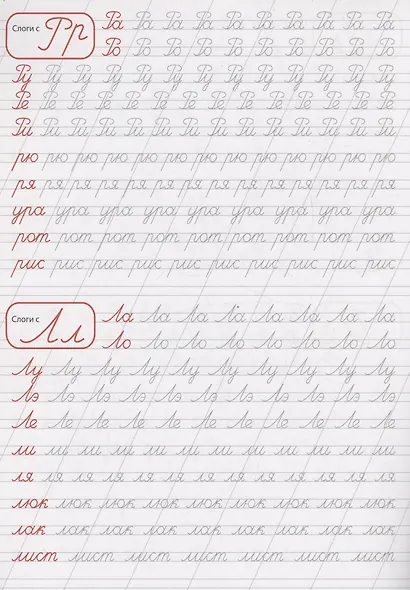 Слоги с Рр Ра Ра Ра Ра Ра Ра Ра Ра Ра Ра
Ро Ро Ро Ро Ро Ро Ро Ро Ро Ро
Ру Ру Ру Ру Ру Ру Ру Ру Ру Ру Ру Ру Ру
Ре Ре Ре Ре Ре Ре Ре Ре Ре Ре Ре Ре Ре Ре
Ри Ри Ри Ри Ри Ри Ри Ри Ри Ри Ри Ри Ри
рю рю рю рю рю рю рю рю рю рю рю рю рю
ря ря ря ря ря ря ря ря ря ря ря ря ря ря
ура ура ура ура ура ура ура ура ура
рот рот рот рот рот рот рот рот рот
рис рис рис рис рис рис рис рис рис
Слоги с Лл Ла Ла Ла Ла Ла Ла Ла Ла
Ло Ло Ло Ло Ло Ло Ло Ло
Лу Лу Лу Лу Лу Лу Лу Лу Лу Лу
Лэ Лэ Лэ Лэ Лэ Лэ Лэ Лэ Лэ Лэ
Ле Ле Ле Ле Ле Ле Ле Ле Ле Ле
ли ли ли ли ли ли ли ли ли ли ли ли
ля ля ля ля ля ля ля ля ля ля ля ля ля
люк люк люк люк люк люк люк люк люк
лак лак лак лак лак лак лак лак лак
лист лист лист лист лист лист лист